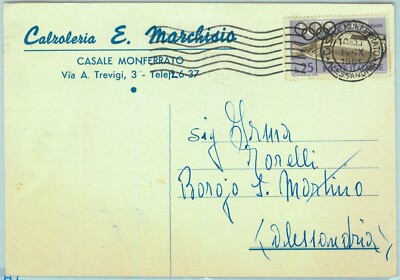 Calzoleria E. Marchisio
CASALE MONFERRATO
Via A. Trevigi, 3 - Telef. 26-37
L.25
CASALE MONFERRATO
ALESSANDRIA
Sig Irma
Morelli
Borgo S. Martino
(Alessandria)